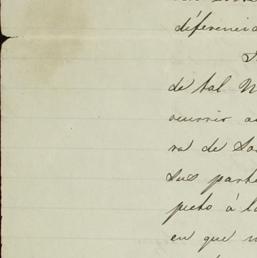 diferencia
de tal M
ocurrir a
ra de Sa
sus parte
pecto á la
en que